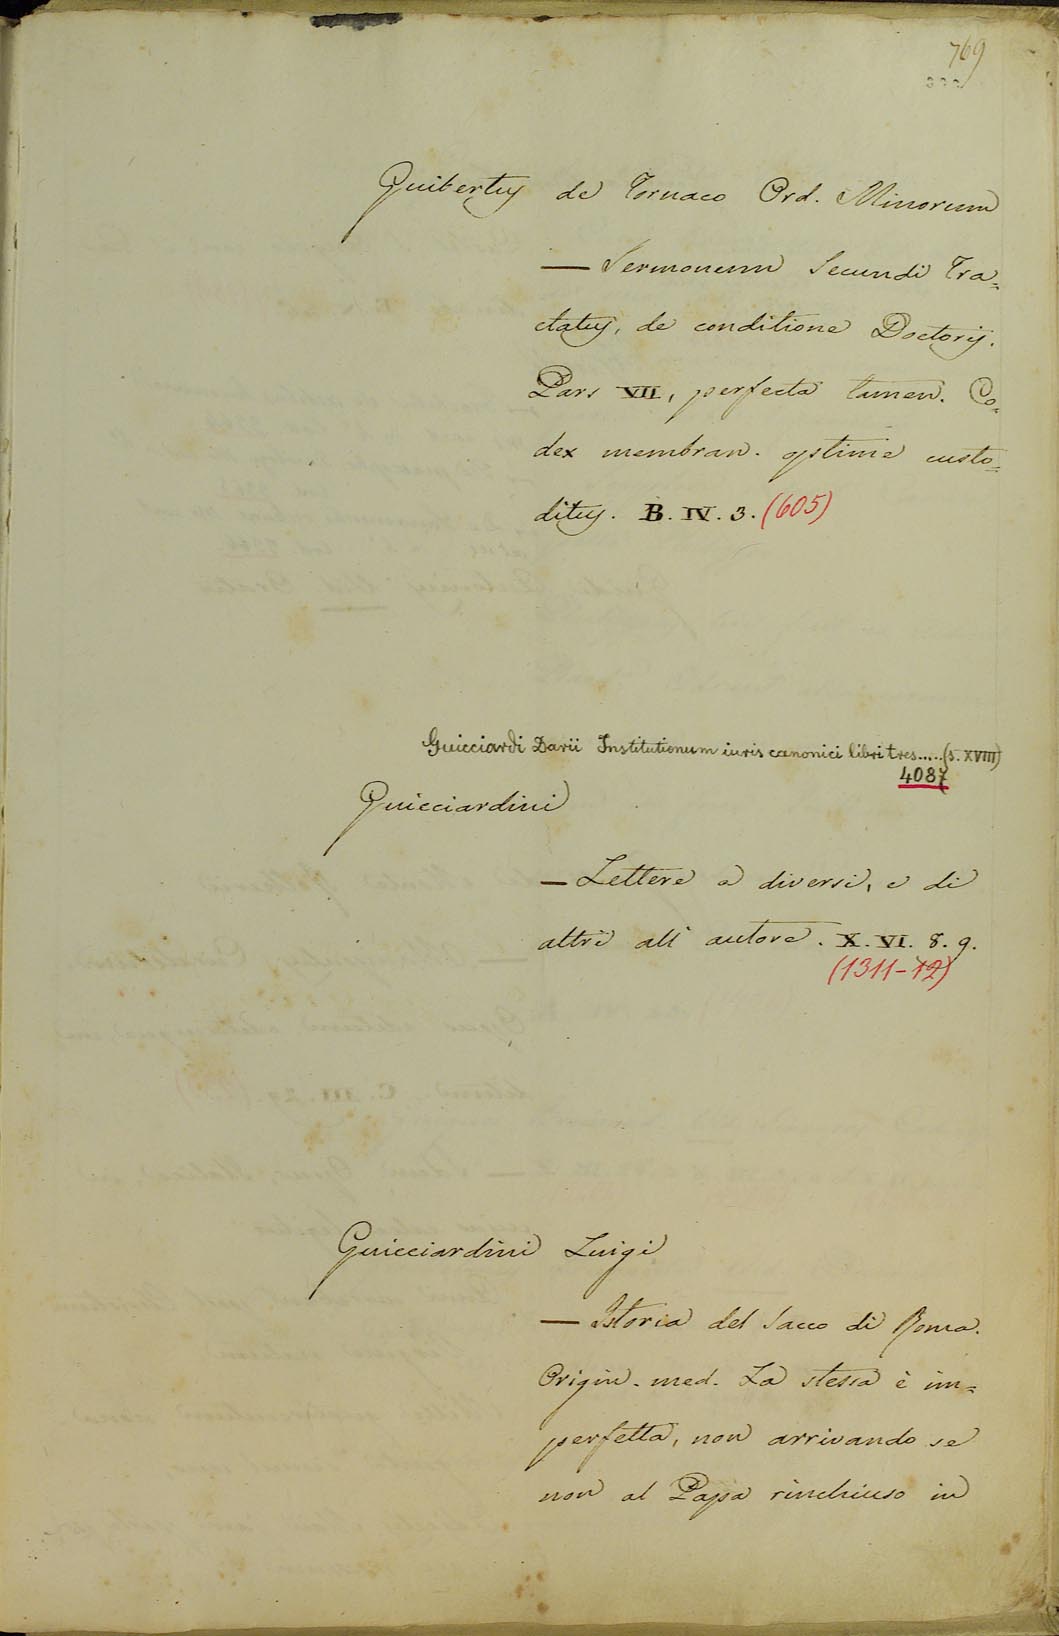 769
Guibertus de Tornaco Ord. Minorum
— Sermonum Secundi Tra=
ctatus, de conditione Doctoris.
Pars VII, perfecta tamen. Co=
dex membran. optime custo=
ditus. B. IV. 3. (605)
Guicciardi Darii Institutionum iuris canonici libri tres.....(s. XVIII)
4087
Guicciardini
— Lettere a diversi, e di
altri all' autore. X. VI. 8. 9.
(1311-12)
Guicciardini Luigi
— Istoria del Sacco di Roma.
Origin. med. La stessa è im=
perfetta, non arrivando se
non al Papa rinchiuso in